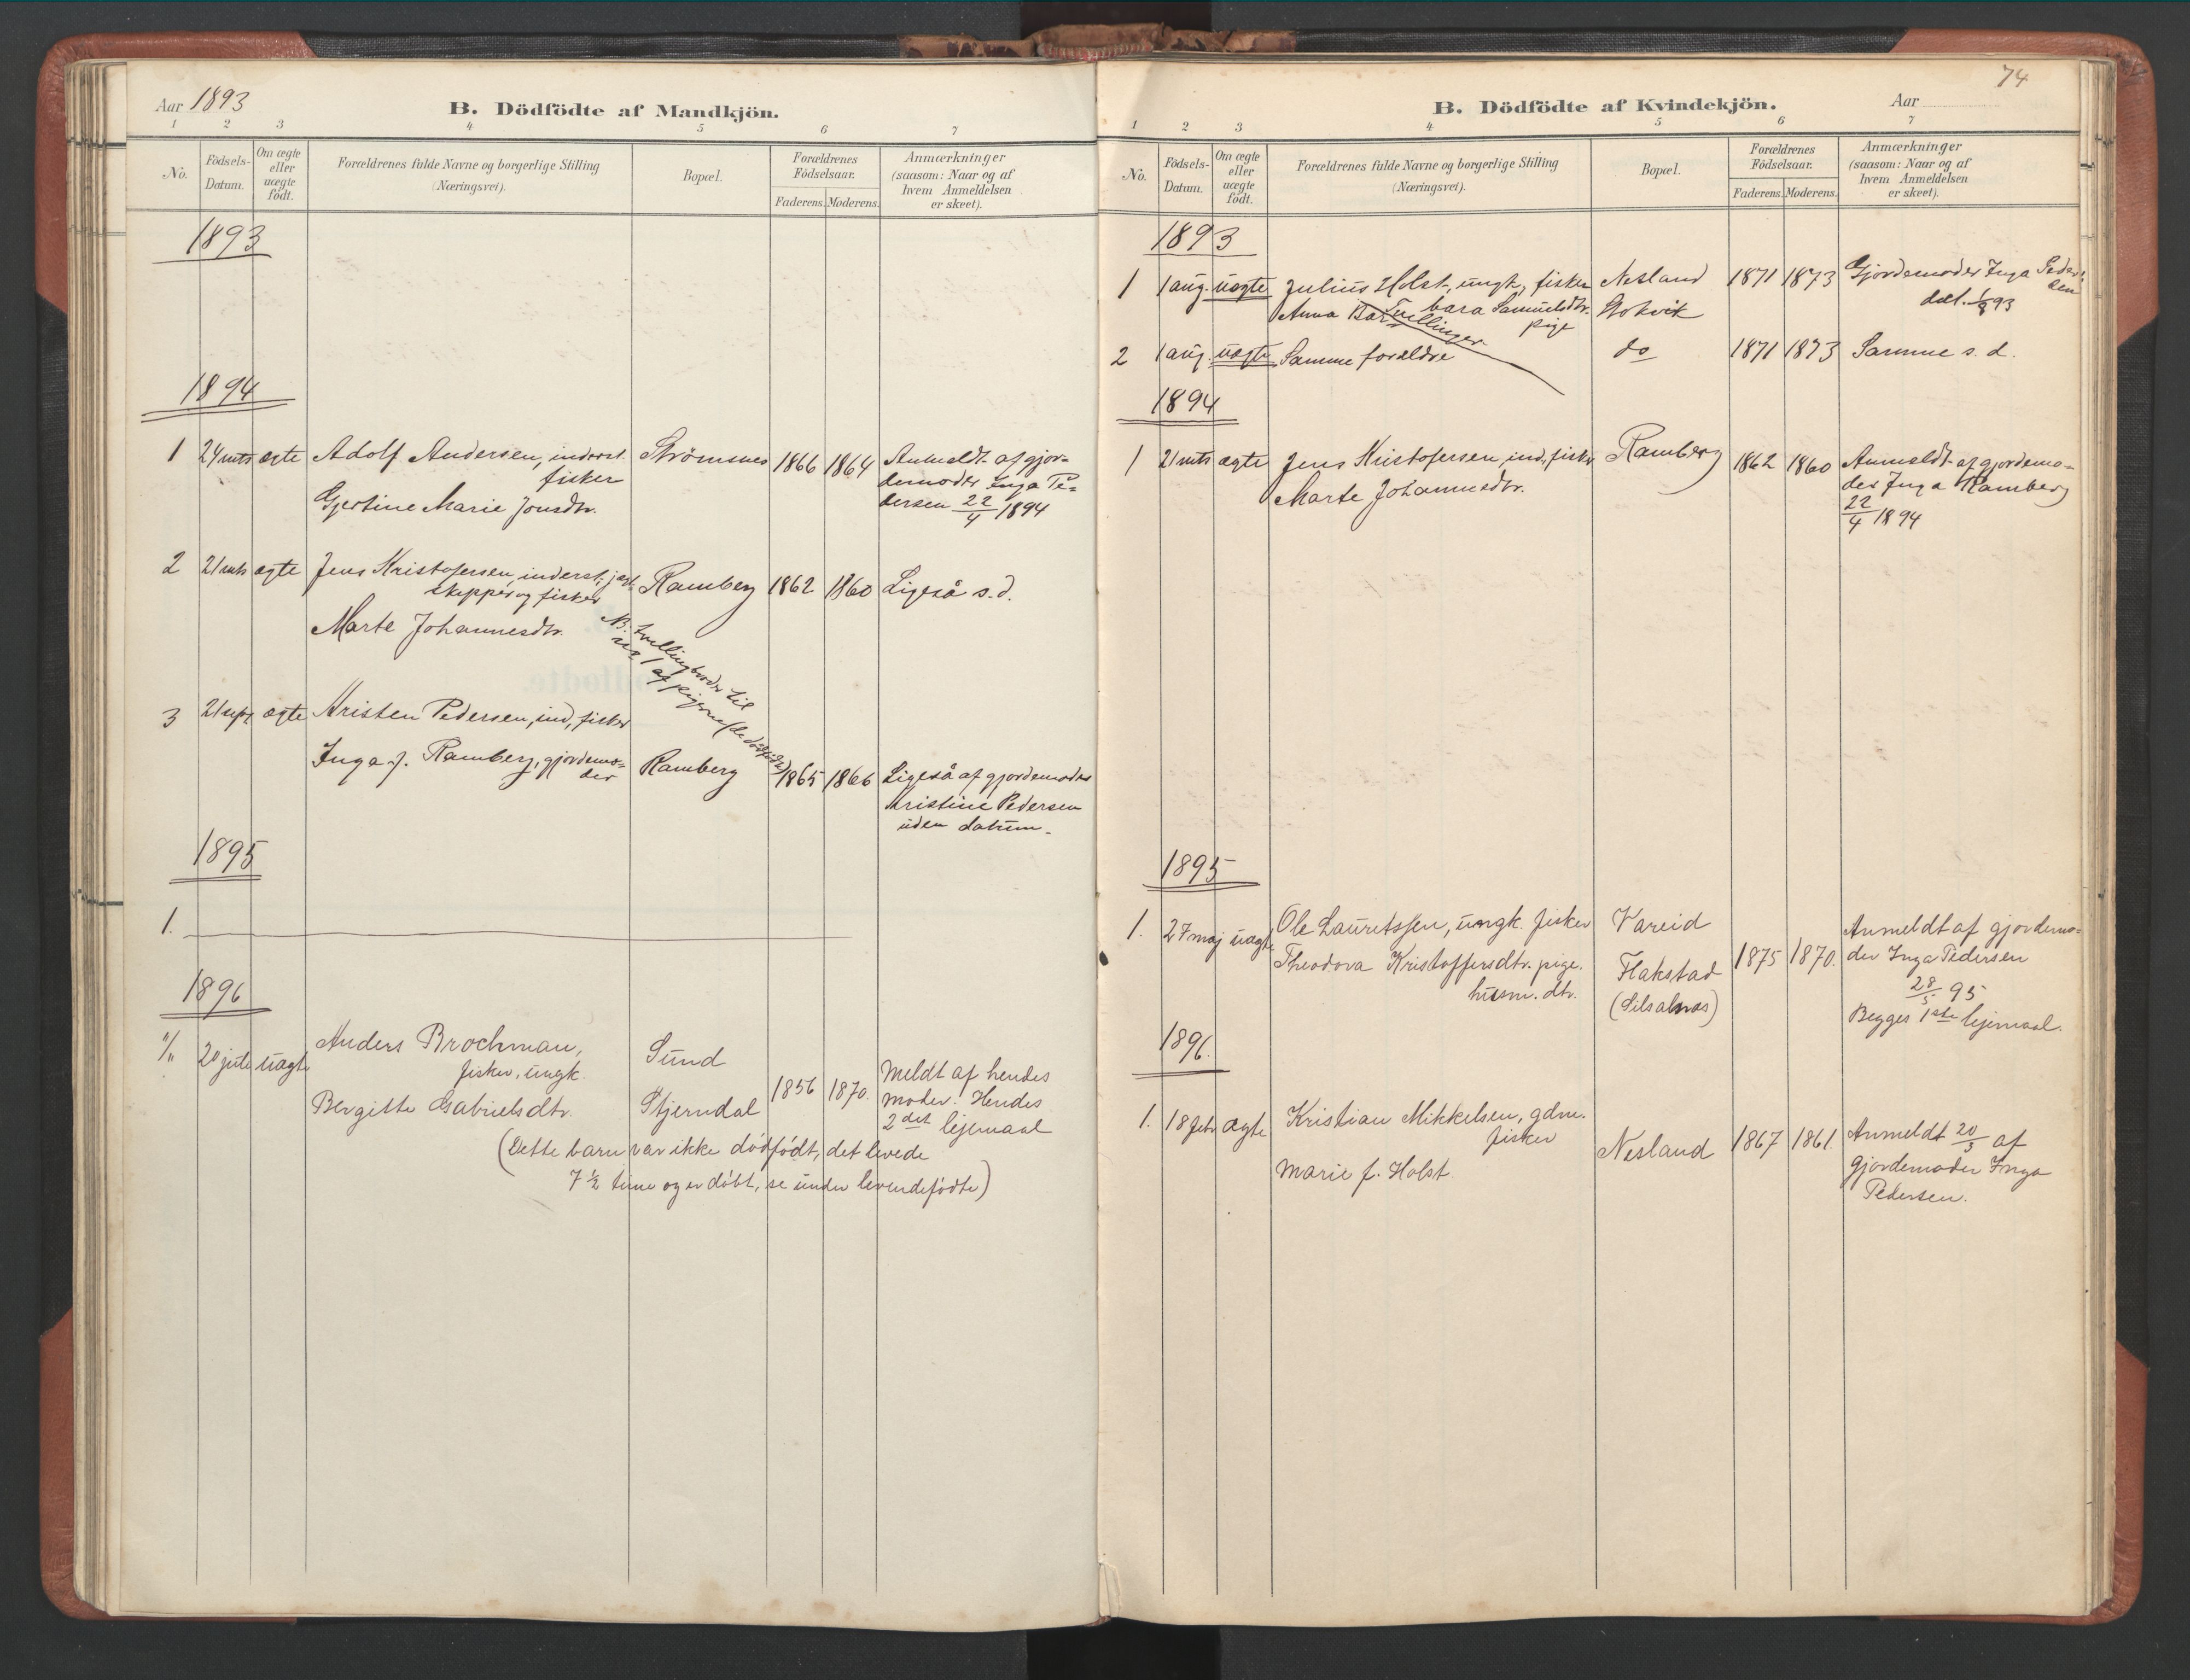 Aar 1893
B. Dödfödte af Mandkjön.
1 2 3 4 5 6 7
No.
Födsels-
Datum.
Om ægte
eller
uægte
födt.
Forældrenes fulde Navne og borgerlige Stilling
(Næringsvei).
Bopæl.
Forældrenes
Födselsaar.
Faderens. Moderens.
Anmærkninger
(saasom: Naar og af
hvem Anmeldelsen
er skeet).
1893
1894
1 24 mts ægte Adolf Andersen, inderst. Strömsnes 1866 1864 Anmeldt af gjor-
fisker demoder Inga Pe-
Gjertine Marie Jonsdtr. dersen 22/4 1894
2 21 mts ægte Jens Kristofersen, inderst, jægt- Ramberg 1862 1860 Ligeså s. d.
skipper og fisker
Marte Johannesdtr.
NB. tvillingbroder til
no 1 af pigerne (de dødfødte)
3 21 sept ægte Kristen Pedersen, ind, fisker
Inga f. Ramberg, gjordemo- Ramberg 1865 1866 Ligeså af gjordemoder
der Kristine Pedersen
uden datum.
1895
1.
1896
"/" 20 juli uægte Anders Brochman, Sund 1856 1870. Meldt af hendes
fisker, ungk. moder. Hendes
Bergitte Gabrielsdtr. Stjerndal 2det lejemaal
(Dette barn var ikke dødfødt, det levede
7 ½ time og er døbt, se under levendefødte)
74
B. Dödfödte af Kvindekjön.
Aar
1 2 3 4 5 6 7
No.
Födsels-
Datum.
Om ægte
eller
uægte
födt.
Forældrenes fulde Navne og borgerlige Stilling
(Næringsvei).
Bopæl.
Forældrenes
Födselsaar.
Faderens. Moderens.
Anmærkninger
(saasom: Naar og af
hvem Anmeldelsen
er skeet).
1893
1 1 aug. uægte Julius Holst, ungk, fisker Nesland 1871 1873 Gjordemoder Inga Peder-
sen
Anna Bar bara Samuelsdtr. Stokvik
pige
Tvillinger
2 1 aug. uægte Samme forældre do 1871 1873 Samme s. d.
1894
1 21 mts ægte Jens Kristofersen, ind, fisker Ramberg 1862 1860 Anmeldt af gjordemo-
Marte Johannesdtr. der Inga Ramberg
22/4 1894
1895
1. 27 maj uægte Ole Lauritssen, ungk. fisker Vareid 1875 1870. Anmeldt af gjordemo-
Theodora Kristoffersdtr. pige. Flakstad der Inga Pedersen
husm. dtr. 28/5 95
Begges 1ste lejemaal.
1896.
1. 18 febr ægte Kristian Mikkelsen, gdm. Nesland 1867 1861. Anmeldt 20/3 af
fisker gjordemoder Inga
Marie f. Holst Pedersen.